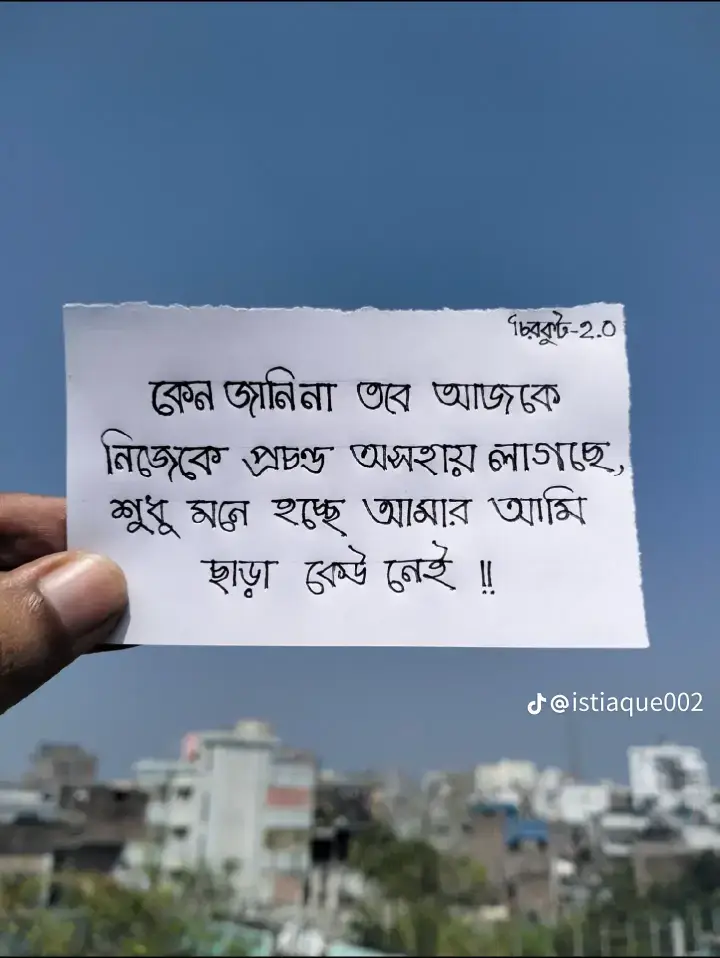 চিরকুট-২.০
কেন জানিনা তবে আজকে
নিজেকে প্রচন্ড অসহায় লাগছে,
শুধু মনে হচ্ছে আমার আমি
ছাড়া কেউ নেই !!
@istiaque002